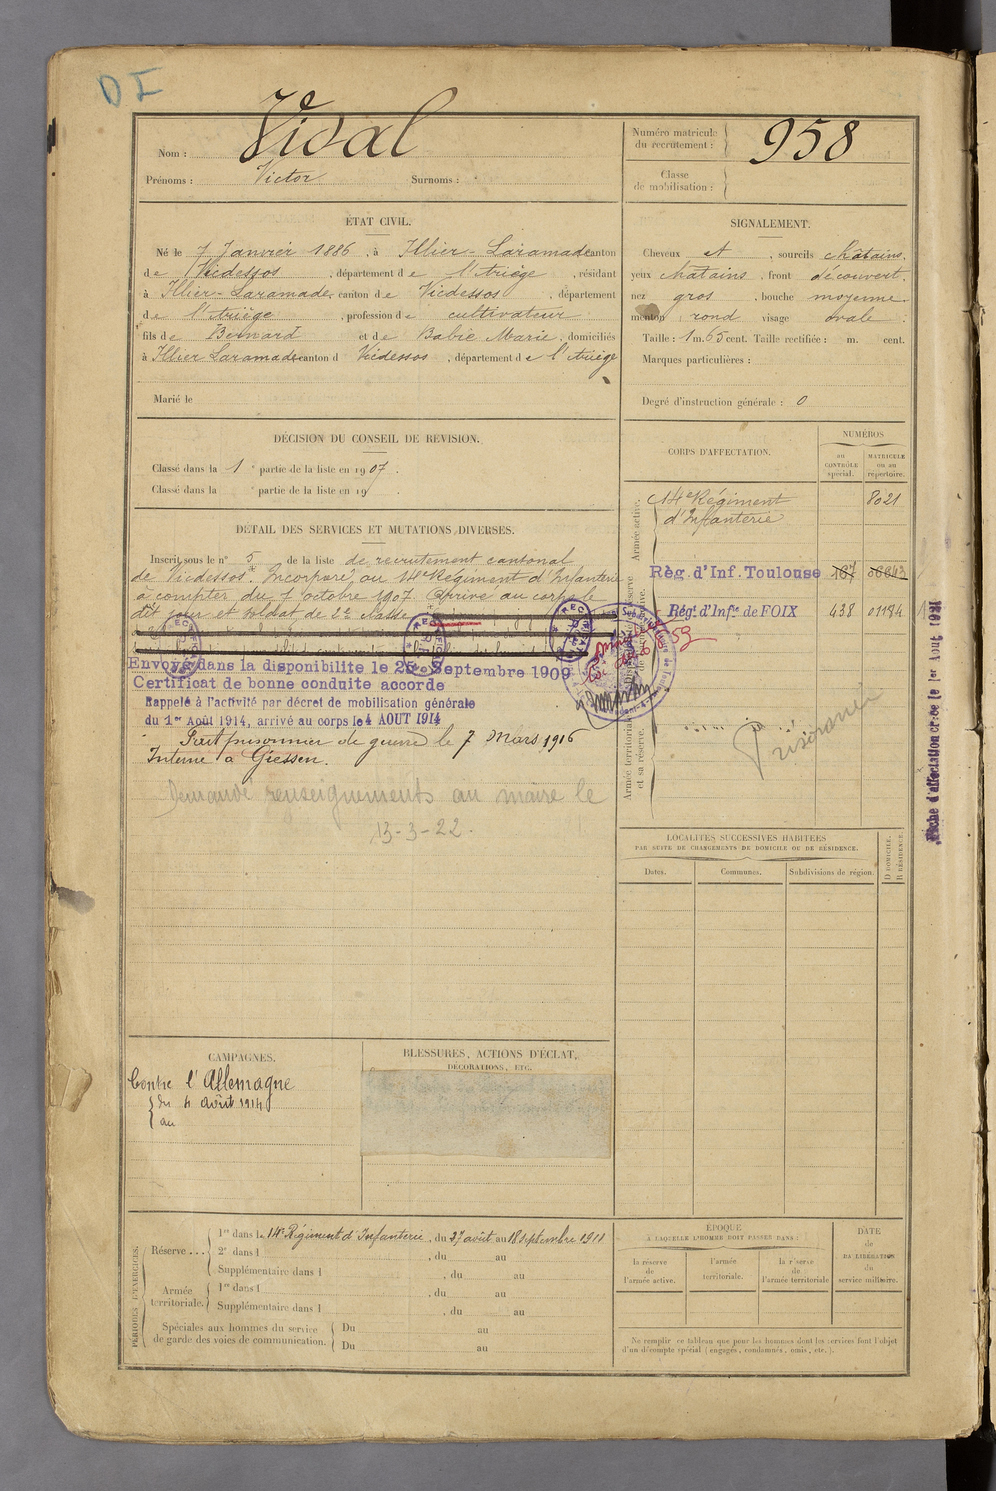 DI
Nom : Vidal
Prénoms : Victor Surnoms :
Numéro matricule du recrutement : 958
Classe de mobilisation :
ÉTAT CIVIL.
Né le 7 Janvier 1886, à Illier-Laramade canton
de Vicdessos, département de l'Ariège, résidant
à Illier-Laramade, canton de Vicdessos, département
de l'Ariège, profession de cultivateur
fils de Bernard et de Babie Marie, domiciliés
à Illier Laramade canton d Vicdessos, département de l'Ariège
Marié le
SIGNALEMENT.
Cheveux et, sourcils châtains,
yeux châtains, front découvert,
nez gros, bouche moyenne
menton rond visage ovale.
Taille : 1 m. 65 cent. Taille rectifiée : m. cent.
Marques particulières :
Degré d'instruction générale : 0
DÉCISION DU CONSEIL DE REVISION.
Classé dans la 1e partie de la liste en 1907.
Classé dans la e partie de la liste en 19 .
DÉTAIL DES SERVICES ET MUTATIONS DIVERSES.
Inscrit sous le n° 5 de la liste de recrutement cantonal
de Vicdessos. Incorporé au 14e Régiment d'Infanterie
à compter du 1 octobre 1907. Arrivé au corps le
dit jour et soldat de 2e classe
Envoyé dans la disponibilite le 25 Septembre 1909
Certificat de bonne conduite accorde
Rappelé à l'activité par décret de mobilisation générale
du 1er Août 1914, arrivé au corps le 4 AOUT 1914
Fait prisonnier de guerre le 7 Mars 1916
Interné à Giessen.
Demandé renseignements au maire le
13-3-22.
CORPS D'AFFECTATION.
NUMÉROS
au CONTRÔLE spécial.
MATRICULE ou au répertoire.
Armée active.
14e Régiment d'Infanterie 8021
Rég. d'Inf. Toulouse 167 06843
Rég. d'Infie de FOIX 438 01184
Armée territoriale et sa réserve.
Prisonnier
Fiche d'affectation créée le 1er Août 1917
LOCALITÉS SUCCESSIVES HABITÉES
PAR SUITE DE CHANGEMENTS DE DOMICILE OU DE RÉSIDENCE.
Dates. Communes. Subdivisions de région.
D DOMICILE.
R RÉSIDENCE.
CAMPAGNES.
Contre l'Allemagne
du 4 août 1914
au
BLESSURES, ACTIONS D'ÉCLAT,
DÉCORATIONS, ETC.
PÉRIODES D'EXERCICES.
Réserve...
1re dans le 14e Régiment d'Infanterie, du 27 août au 18 septembre 1911
2e dans l , du au
Supplémentaire dans l , du au
Armée territoriale.
1re dans l , du au
Supplémentaire dans l , du au
Spéciales aux hommes du service de garde des voies de communication.
Du au
Du au
ÉPOQUE
À LAQUELLE L'HOMME DOIT PASSER DANS :
la réserve de l'armée active.
l'armée territoriale.
la réserve de l'armée territoriale
DATE
de
LA LIBÉRATION
du
service militaire.
Ne remplir ce tableau que pour les hommes dont les services font l'objet
d'un décompte spécial (engagés, condamnés, omis, etc.).